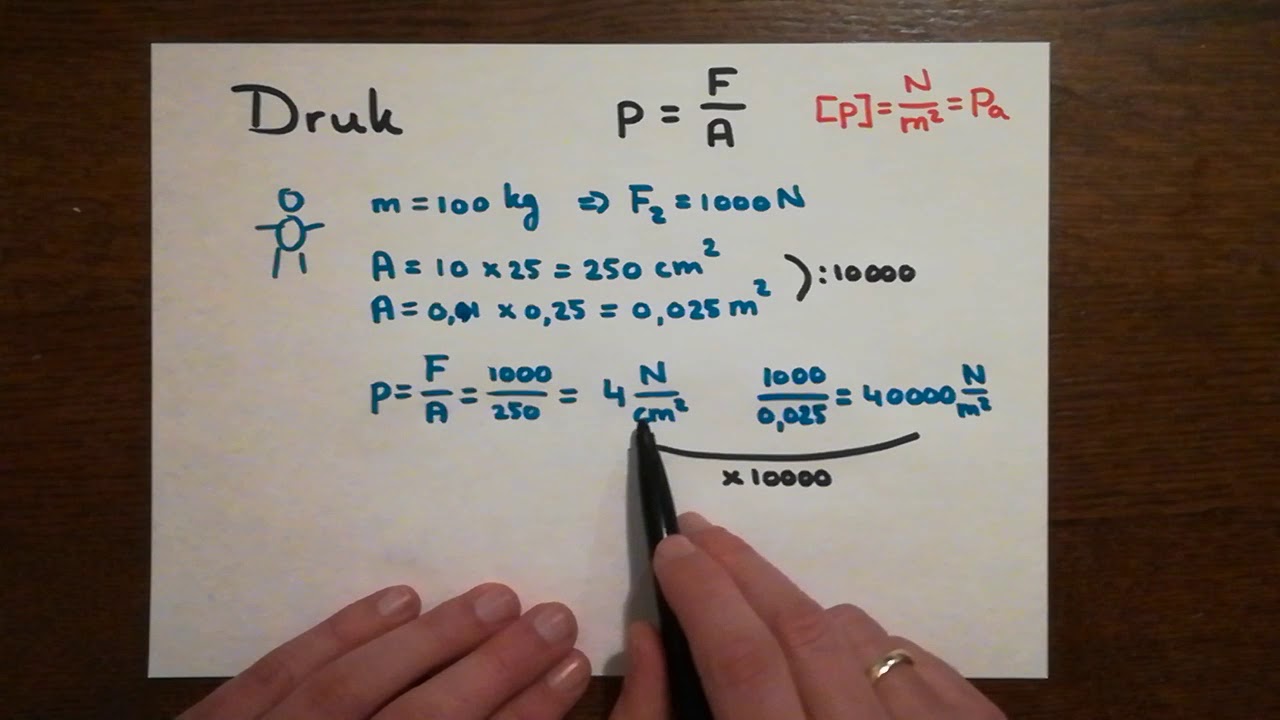 Druk p = F/A [p] = N/m² = Pa
m = 100 kg ⇒ Fz = 1000 N
A = 10 x 25 = 250 cm²
) : 10000
A = 0,1 x 0,25 = 0,025 m²
p = F/A = 1000/250 = 4 N/cm² 1000/0,025 = 40000 N/m²
x 10000